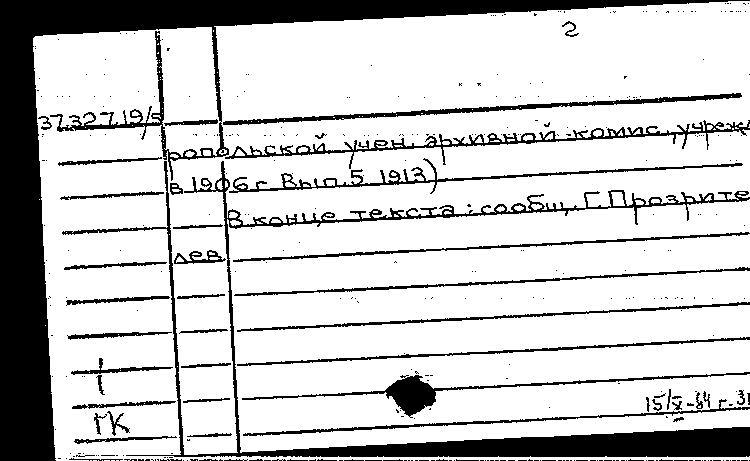 2
37.327.19/5
ропольской учен. архивной комис., учреж
в 1906 г. Вып. 5 1913)
В конце текста: сообщ. Г. Прозрите
лев
ГК
15/X-84 г.